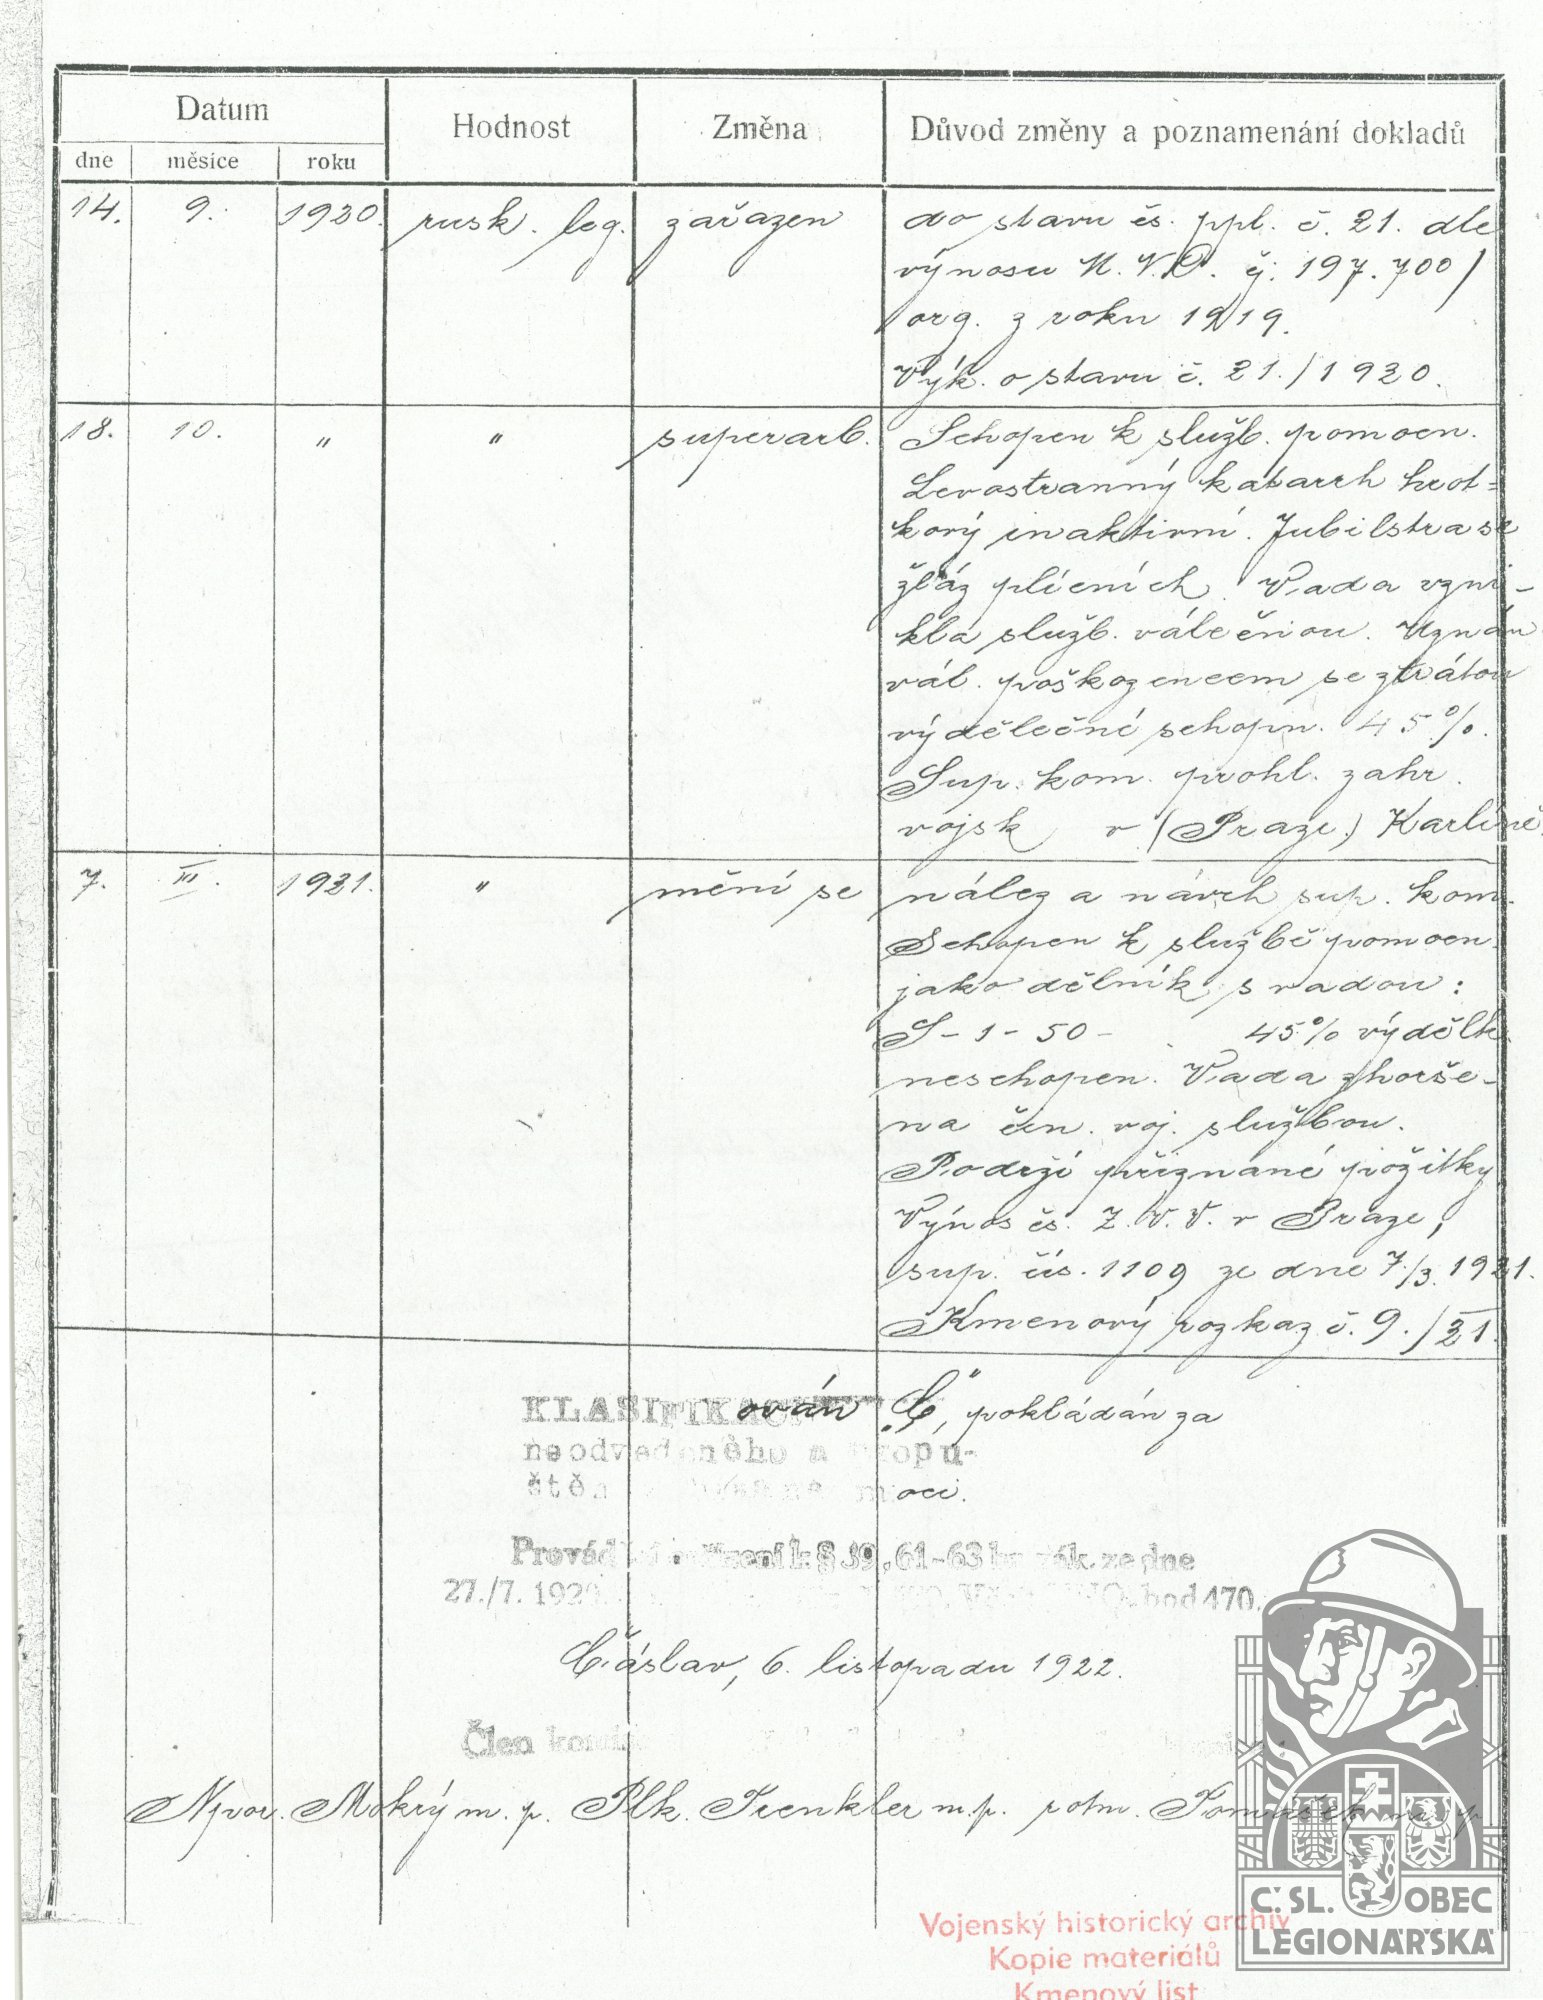 Datum
Hodnost
Změna
Důvod změny a poznamenání dokladů
dne
měsíce
roku
14. 9. 1920. rusk. leg. zařazen do stavu čs. ppl. č. 21. dle
výnosu M.N.O. čj. 197.700/
org. z roku 1919.
Výk. o stavu č. 21./1920.
18. 10. " " superarb. Schopen k služb. pomocn.
Levostranný katarrh hrot=
kový inaktivní. Jubilstrase
žláz plícních. Vada vzni-
kla služb. válečnou. Uznán
vál. poškozencem se ztrátou
výdělečné schopn. 45%.
Sup. kom. prohl. zahr.
vojsk v (Praze) Karlíně.
7. III. 1921. " mění se nález a návrh sup. kom.
Schopen k službě pomocn.
jako dělník s vadou:
S-1-50- 45% výdělk.
neschopen. Vada zhorše-
na čin. voj. službou.
Podrží přiznané požitky
Výnos čs. Z.V.V. v Praze,
sup. čís. 1109 ze dne 7./3. 1921.
Kmenový rozkaz č. 9./21.
KLASIFIKOván "C", pokládán za
neodvedeného a propu-
štěn moci.
Prováděcí nařízení k § 39, 61-63 br. zák. ze dne
27./7. 1920 bod 170.
Čáslav, 6. listopadu 1922.
Člen
Npor. Mokrý m.p. Plk. Trenkler m.p. rotm. Tomášek m.p.
Č.SL. OBEC
LEGIONÁŘSKÁ
Vojenský historický archiv
Kopie materiálů
Kmenový list